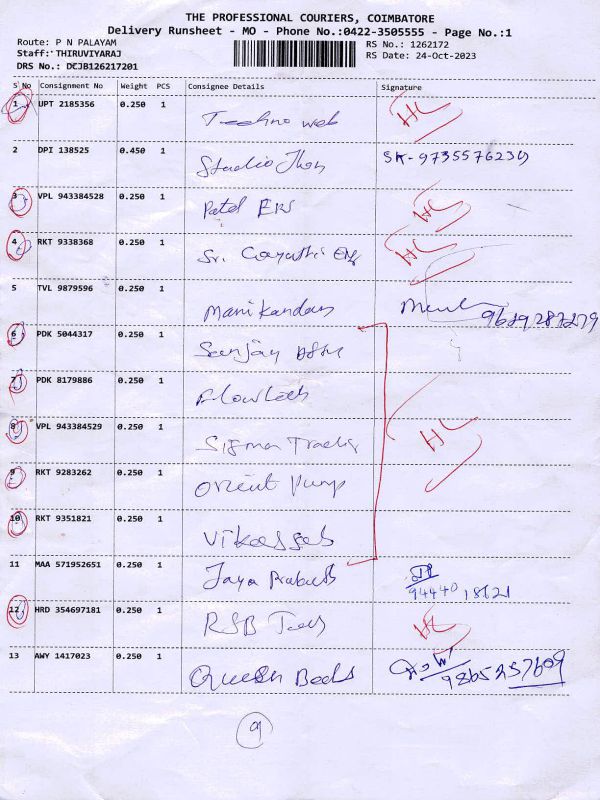 THE PROFESSIONAL COURIERS, COIMBATORE
Delivery Runsheet - MO - Phone No.:0422-3505555 - Page No.:1
Route: P N PALAYAM RS No.: 1262172
Staff: THIRUVIYARAJ RS Date: 24-Oct-2023
DRS No.: DCJB126217201
S No Consignment No Weight PCS Consignee Details Signature
1 UPT 2185356 0.250 1 Techno web HL
2 DPI 138525 0.450 1 Studio Jhon SK-9735576230
3 VPL 943384528 0.250 1 Patel ENG HL
4 RKT 9338368 0.250 1 Sri Gayathri Eng HL
5 TVL 9879596 0.250 1 Manikandan 9629287279
6 PDK 5044317 0.250 1 Sanjay
7 PDK 8179886 0.250 1 Flowtech
8 VPL 943384529 0.250 1 Sigma Trading HL
9 RKT 9283262 0.250 1 Orient Pump
10 RKT 9351821 0.250 1
11 MAA 571952651 0.250 1 Jaya Prakash 94440 18621
12 HRD 354697181 0.250 1 RSB HL
13 AWY 1417023 0.250 1 Queen Beds 9865257609
9